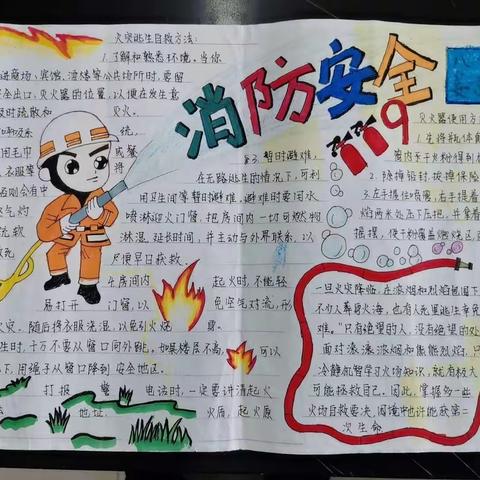 消防安全
119
火灾逃生自救方法:
1.了解和熟悉环境。当你
进商场、宾馆、酒楼等公共场所时,要留
安全出口,灭火器的位置,以便在发生意
及时疏散和 灭火。
用毛巾 或餐
3.暂时避难,
在无路逃生的情况下,可利
用卫生间等暂时避难,避难时要用水
喷淋迎火门窗,把房间内一切可燃物
淋湿,延长时间,并主动与外界联系,以
便早日获救。
4.房间内 起火时,不能轻
易打开 门窗,以 免空气对流,形
火灾。随后将衣服洗湿,以免引火烧 身。
生时,千万不要从窗口向外跳。如果楼层不高, 可以
下,用绳子从窗口降到安全地区。
打报警 电话时,一定要讲清起火
地址、 火盾,起火原
灭火器使用方
1.先将瓶体
2.除掉铅封,拔掉保险
3.左手握住喷嘴,右手提着
焰两米处压下压把,并拿着
摇摆,使干粉覆盖燃烧区
一旦火灾降临,在浓烟和烈焰包围下
不少人葬身火海,也有人死里逃生幸免
难。“只有绝望的人,没有绝望的处
面对滚滚浓烟和熊熊烈焰,只
冷静机智学习火场知识,就有极大
可能拯救自己。因此,掌握多一些
火场自救要决,困境中也许能获第二
次生命